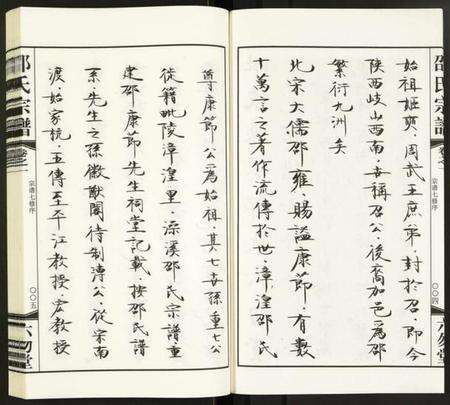 邵氏宗譜
宗譜七修序
〇〇四
六勿堂
始祖姬奭,周武王庶弟,封於召,即今
陝西岐山西南,古稱召公,後裔加邑為邵
繁衍九洲矣
北宋大儒邵雍,賜謚康節,有數
十萬言之著作流傳於世,漳湟邵氏
尊康節公為始祖,其七世孫重七公
徙籍毗陵漳湟里,深溪邵氏宗譜重
建邵康節先生祠堂記載,按邵氏譜
系先生之孫徽猷閣待制溥公,從宋南
渡,始家杭,五傳至平江教授宏教授
邵氏宗譜
卷之
宗譜七修序
〇〇五
六勿堂